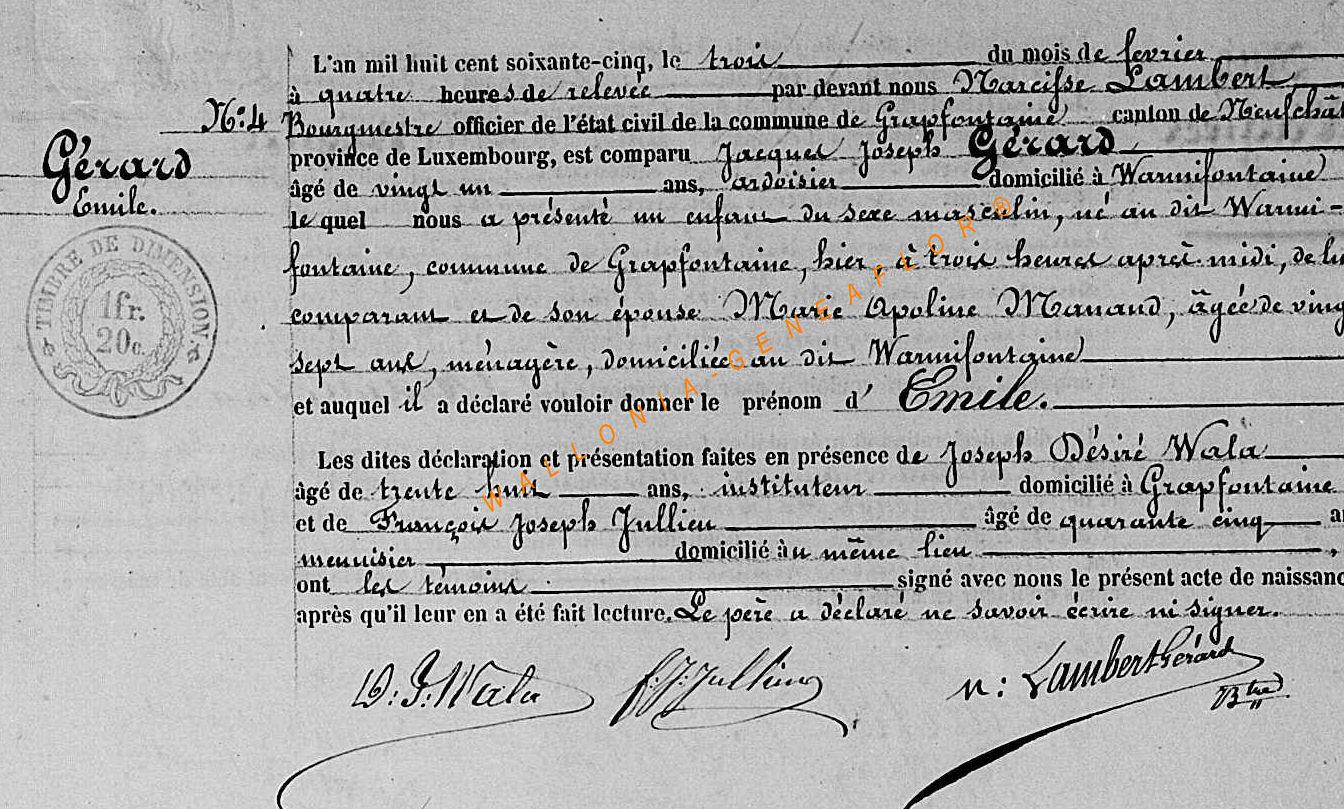 L'an mil huit cent soixante-cinq, le trois du mois de fevrier
à quatre heures de relevée par devant nous Narcisse Lambert
N.º 4 Bourgmestre officier de l'état civil de la commune de Grapfontaine canton de Neufchâ
Gérard
province de Luxembourg, est comparu Jacques Joseph Gérard
âgé de vingt un ans, ardoisier domicilié à Warmifontaine
Emile.
le quel nous a présenté un enfant du sexe masculin, né au dit Warmi-
fontaine, commune de Grapfontaine, hier, à trois heures après-midi, de lui
comparant et de son épouse Marie Apoline Manand, âgée de ving
sept ans, ménagère, domiciliée au dit Warmifontaine
et auquel il a déclaré vouloir donner le prénom d' Emile.
TIMBRE DE DIMENSION.
1fr.
20c.
Les dites déclaration et présentation faites en présence de Joseph Désiré Wala
âgé de trente huit ans, instituteur domicilié à Grapfontaine
et de François Joseph Jullien âgé de quarante cinq a
menuisier domicilié au même lieu ,
ont les témoins signé avec nous le présent acte de naissanc
après qu'il leur en a été fait lecture. Le père a déclaré ne savoir écrire ni signer.
D. J. Wala f: J. Jullien n: Lambert Gérard
Btre
WALLONIA-GENEAFLOR ®